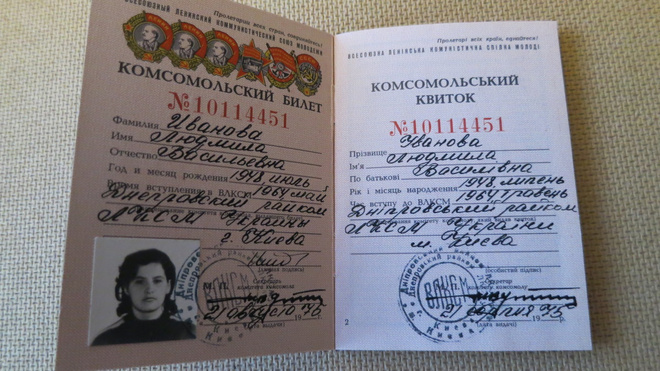 Пролетарии всех стран, соединяйтесь!
ВСЕСОЮЗНЫЙ ЛЕНИНСКИЙ КОММУНИСТИЧЕСКИЙ СОЮЗ МОЛОДЕЖИ
КОМСОМОЛЬСКИЙ БИЛЕТ
№10114451
Фамилия Иванова
Имя Людмила
Отчество Васильевна
Год и месяц рождения 1948 июль
Время вступления в ВЛКСМ 1964 май
Днепровский райком
ЛКСМ Украины
г. Киева
(личная подпись)
М. П.
Секретарь
комитета комсомола
21 августа 1975 г.
(дата выдачи)
Пролетарі всіх країн, єднайтеся!
ВСЕСОЮЗНА ЛЕНІНСЬКА КОМУНІСТИЧНА СПІЛКА МОЛОДІ
КОМСОМОЛЬСЬКИЙ
КВИТОК
№10114451
Прізвище Іванова
Ім'я Людмила
По батькові Василівна
Рік і місяць народження 1948 липень
Час вступу до ВЛКСМ 1964 травень
Дніпровський райком
ЛКСМ України
м. Києва
(особистий підпис)
Секретар
комітету комсомолу
21 серпня 1975 р.
(дата видачі)
ВЛКСМ
2